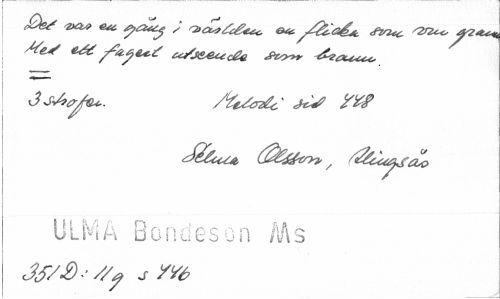 Det var en gång i världen en flicka som var grann
Med ett fagert utseende som brann.
3 strofer. Melodi sid 448
Selma Olsson, Alingsås
ULMA Bondeson Ms
351 D: 11 g s 446